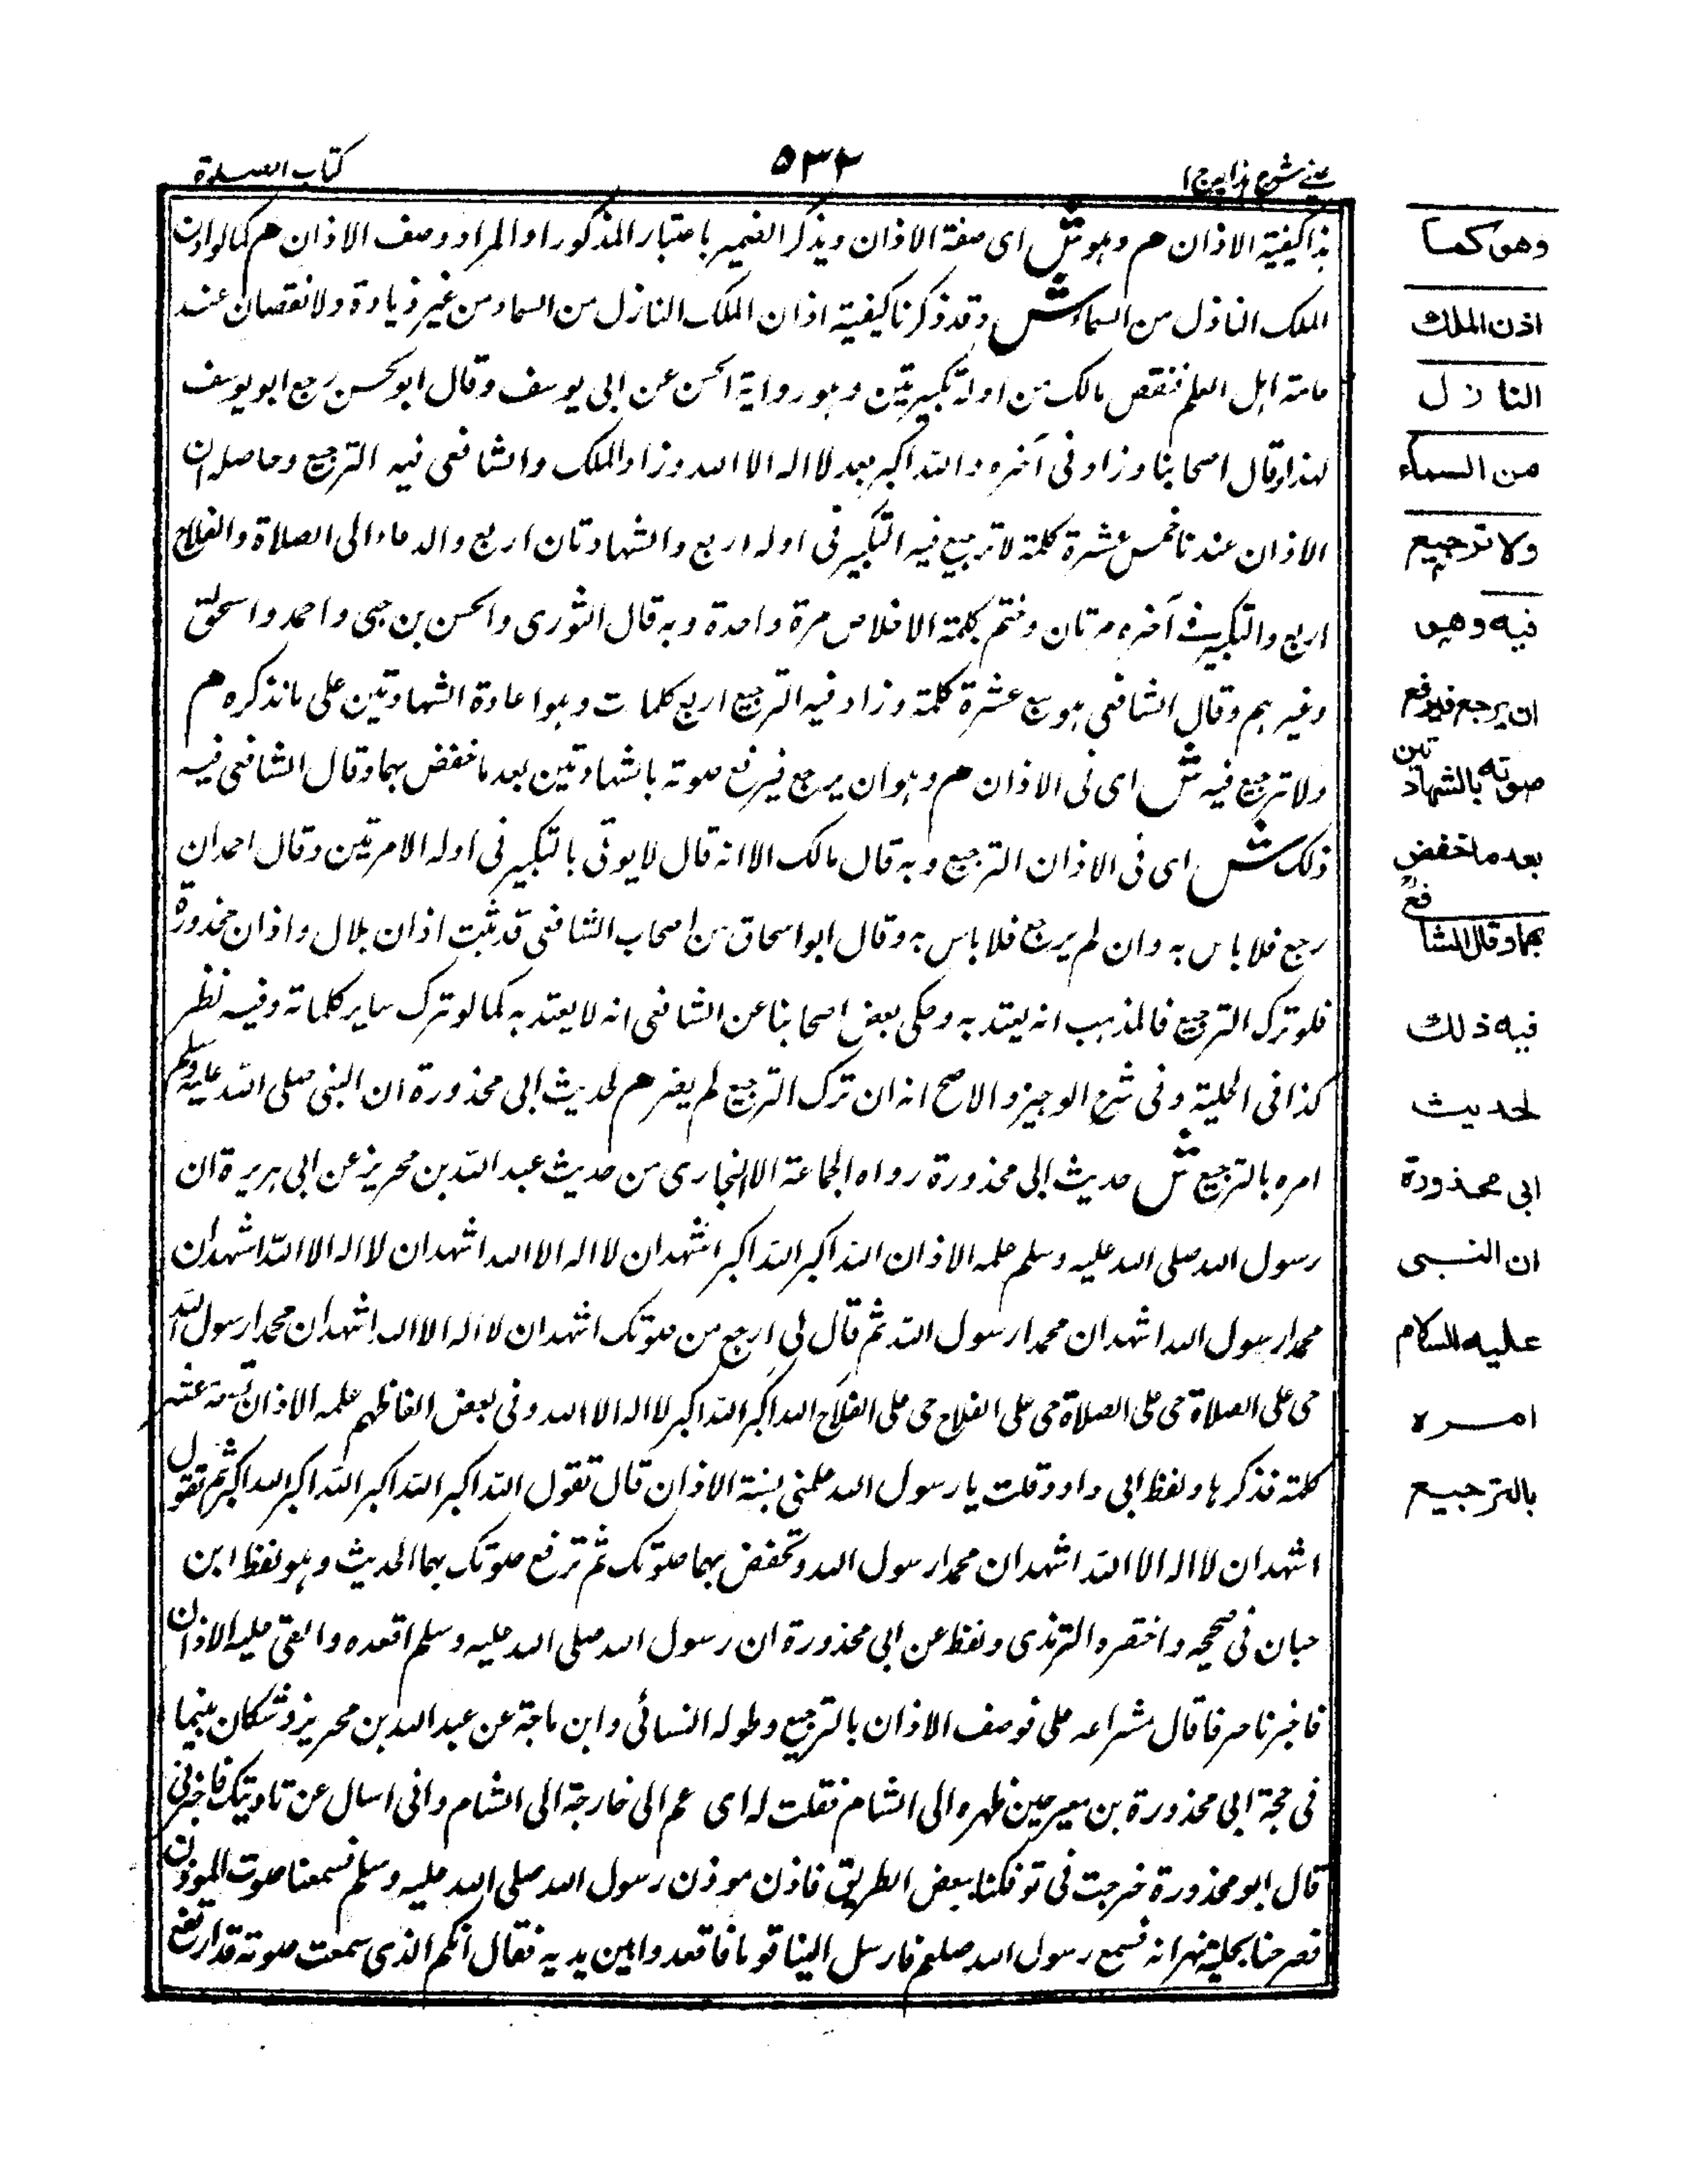 عيني شرح هدايه ج١
٥٣٢
كتاب الصلوة
هذا كيفية الاذان هم وهو ش اى صفة الاذان ويذكر الضمير باعتبار المذكور او المراد وصف الاذان هم كما لو اذن
الملك النازل من السماء ش وقد ذكرنا كيفية اذان الملك النازل من السماء من غير زيادة ولا نقصان عند
عامة اهل العلم فنقص مالك من اوله تكبيرتين وهو رواية الحسن عن ابى يوسف وقال ابو الحسن رجع ابو يوسف
لهذا وقال اصحابنا وزاد فى آخره والله اكبر بعد لا اله الا الله وزاد الملك والشافعى فيه الترجيع وحاصله ان
الاذان عندنا خمس عشرة كلمة لا ترجيع فيه التكبير فى اوله اربع والشهادتان اربع والدعاء الى الصلاة والفلاح
اربع والتكبير فى آخره مرتان وختم بكلمة الاخلاص مرة واحدة وبه قال الثورى والحسن بن حى واحمد واسحق
وغيرهم وقال الشافعى هو سبع عشرة كلمة وزاد فيه الترجيع اربع كلمات وهو اعادة الشهادتين على ما نذكره هم
ولا ترجيع فيه ش اى فى الاذان هم وهو ان يرجع فيرفع صوته بالشهادتين بعد ما خفض بهما وقال الشافعى فيه
ذلك ش اى فى الاذان الترجيع وبه قال مالك الا انه قال لا يوتى بالتكبير فى اوله الا مرتين وقال احمد ان
رجع فلا باس به وان لم يرجع فلا باس به وقال ابو اسحاق من اصحاب الشافعى قد ثبت اذان بلال واذان محذورة
فلو ترك الترجيع فالمذهب انه يعتد به وحكى بعض اصحابنا عن الشافعى انه لا يعتد به كما لو ترك ساير كلماته وفيه نظر
كذا فى الحلية وفى شرح الوجيز والاصح انه ان ترك الترجيع لم يضر هم لحديث ابى محذورة ان النبى صلى الله عليه وسلم
امره بالترجيع ش حديث ابى محذورة رواه الجماعة الا البخارى من حديث عبد الله بن محريز عن ابى هريرة ان
رسول الله صلى الله عليه وسلم علمه الاذان الله اكبر الله اكبر اشهد ان لا اله الا الله اشهد ان لا اله الا الله اشهد ان
محمدا رسول الله اشهد ان محمدا رسول الله ثم قال لى ارجع من صوتك اشهد ان لا اله الا الله اشهد ان محمدا رسول الله
حى على الصلاة حى على الصلاة حى على الفلاح حى على الفلاح الله اكبر الله اكبر لا اله الا الله وفى بعض الفاظهم علمه الاذان تسعة عشر
كلمة فذكرها ولفظ ابى داود قلت يا رسول الله علمنى سنة الاذان قال تقول الله اكبر الله اكبر الله اكبر الله اكبر ثم تقول
اشهد ان لا اله الا الله اشهد ان محمدا رسول الله وتخفض بهما صوتك ثم ترفع صوتك بهما الحديث وهو لفظ ابن
حبان فى صحيحه واختصره الترمذى ولفظ عن ابى محذورة ان رسول الله صلى الله عليه وسلم اقعده والقى عليه الاذان
فاخبرنا حرفا قال بشر اعد على فوصف الاذان بالترجيع وطوله النسائى وابن ماجة عن عبد الله بن محريز وكان يتيما
فى حجة ابى محذورة بن معير حين ظهره الى الشام فقلت له اى عم الى خارجة الى الشام وانى اسال عن تاديك فاخبرنى
قال ابو محذورة خرجت فى فكنا ببعض الطريق فاذن موذن رسول الله صلى الله عليه وسلم فسمعنا صوت الموذن
فصرخنا نهزا به فسمع رسول الله صلعم فارسل الينا قوما فاقعدوا بين يديه فقال ايكم الذى سمعت صوته قد ارتفع
وهو كما
اذن الملك
النازل
من السماء
ولا ترجيع
فيه وهو
ان يرجع فيرفع
صوته بالشهادتين
بعد ما خفض
بهما وقال الشافعي
فيه ذلك
لحديث
ابى محذورة
ان النبى
عليه السلام
امره
بالترجيع